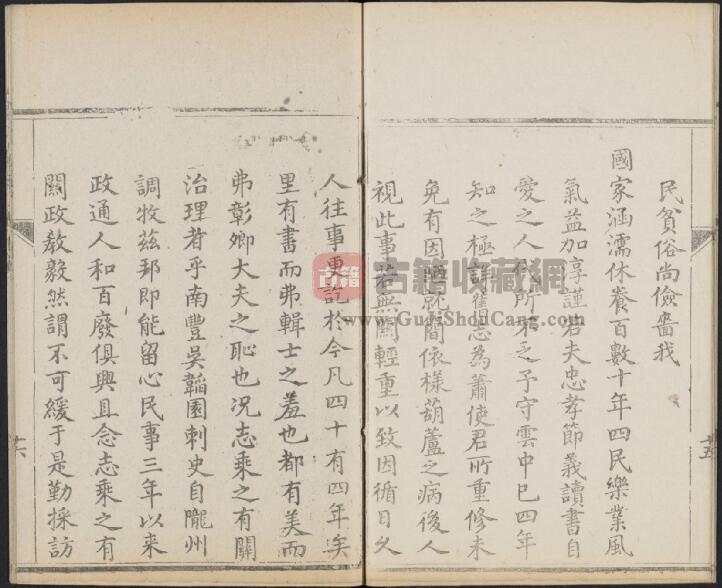 民貧俗尚儉嗇我
國家涵濡休養百數十年四民樂業風
氣益加淳謹若夫忠孝節義讀書自
愛之人代所不乏予守雲中已四年
知之極詳舊志為蕭使君所重修未
免有因陋就簡依樣葫蘆之病後人
視此事若無關輕重以致因循日久
人往事更訖於今凡四十有四年矣
里有書而弗輯士之羞也都有美而
弗彰鄉大夫之恥也况志乘之有關
治理者乎南豐吳韞園刺史自隴州
調牧茲邦即能留心民事三年以來
政通人和百廢俱興且念志乘之有
關政教毅然謂不可緩于是勤採訪
十五
十六
古籍
古籍收藏网
www.GuJiShouCang.com